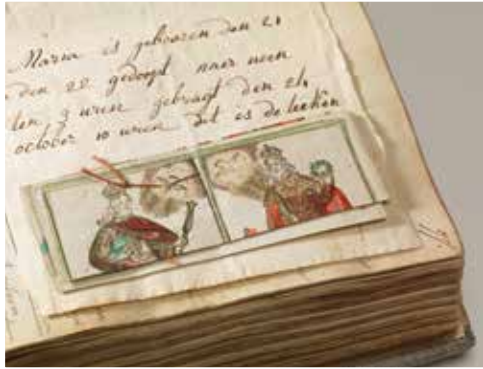 Maria is gebooren den 21
den 22 gedoopt naer neen
ten 3 uren gebragt den 24
october 10 uren dit is de teeken